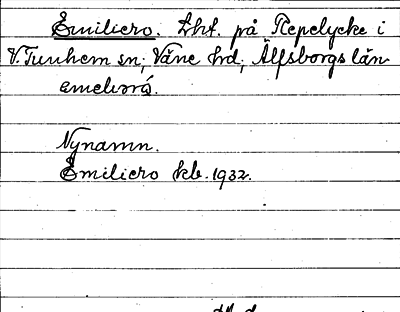 Emiliero. Lht. på Repelycke i
V. Tunhem sn; Väne hd, Älfsborgs län
Nynamn.
Emiliero kb. 1932.